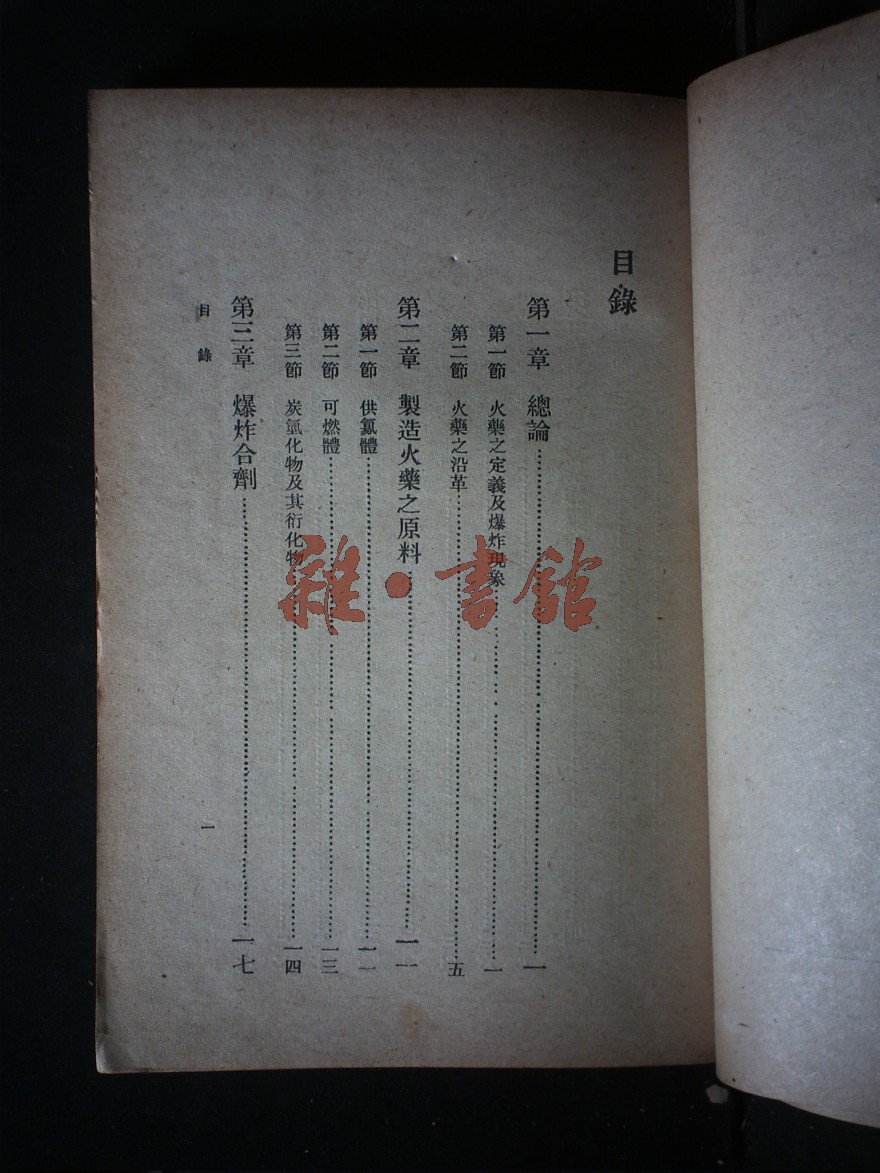 目錄
第一章 總論……一
第一節 火藥之定義及爆炸現象……一
第二節 火藥之沿革……五
第二章 製造火藥之原料……一一
第一節 供氯體……一一
第二節 可燃體……一三
第三節 炭氫化物及其衍化物……一四
第三章 爆炸合劑……一七
目錄
一
雜·書館